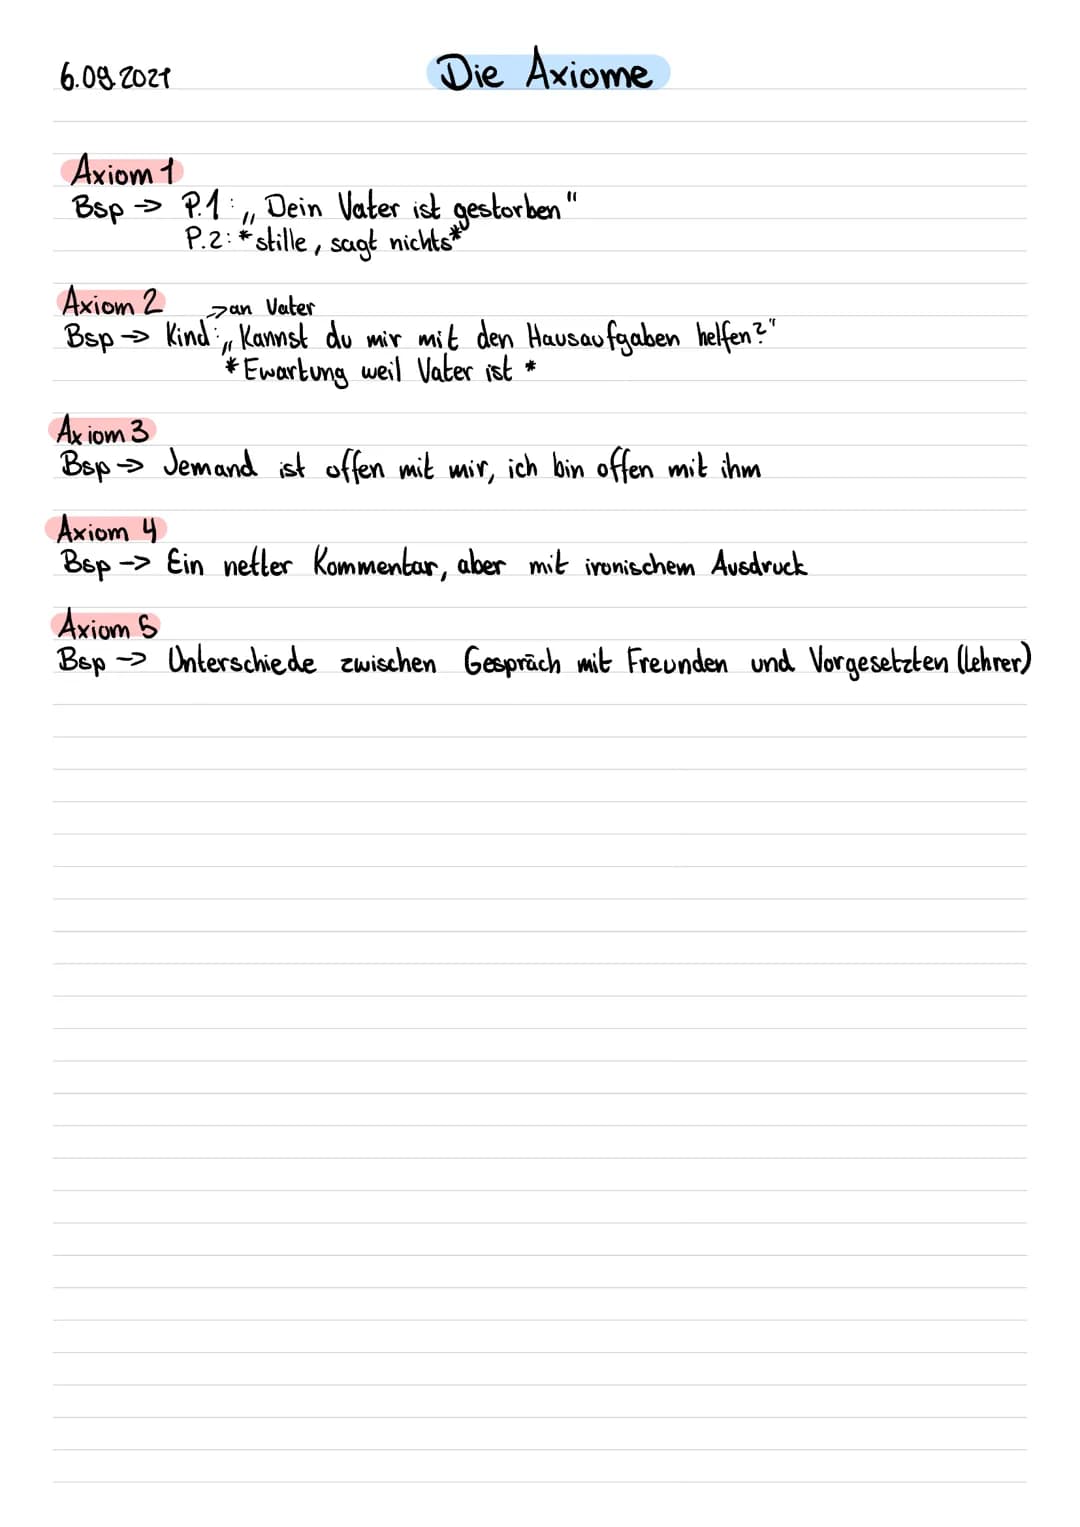 6.09.2021
Die Axiome
Axiom 1
Bsp → P.1: „Dein Vater ist gestorben"
P.2: *stille, sagt nichts*
Axiom 2
→ an Vater
Bsp → Kind: „Kannst du mir mit den Hausaufgaben helfen?"
*Ewartung weil Vater ist *
Axiom 3
Bsp → Jemand ist offen mit mir, ich bin offen mit ihm
Axiom 4
Bsp → Ein netter Kommentar, aber mit ironischem Ausdruck
Axiom 5
Bsp → Unterschiede zwischen Gespräch mit Freunden und Vorgesetzten (Lehrer)